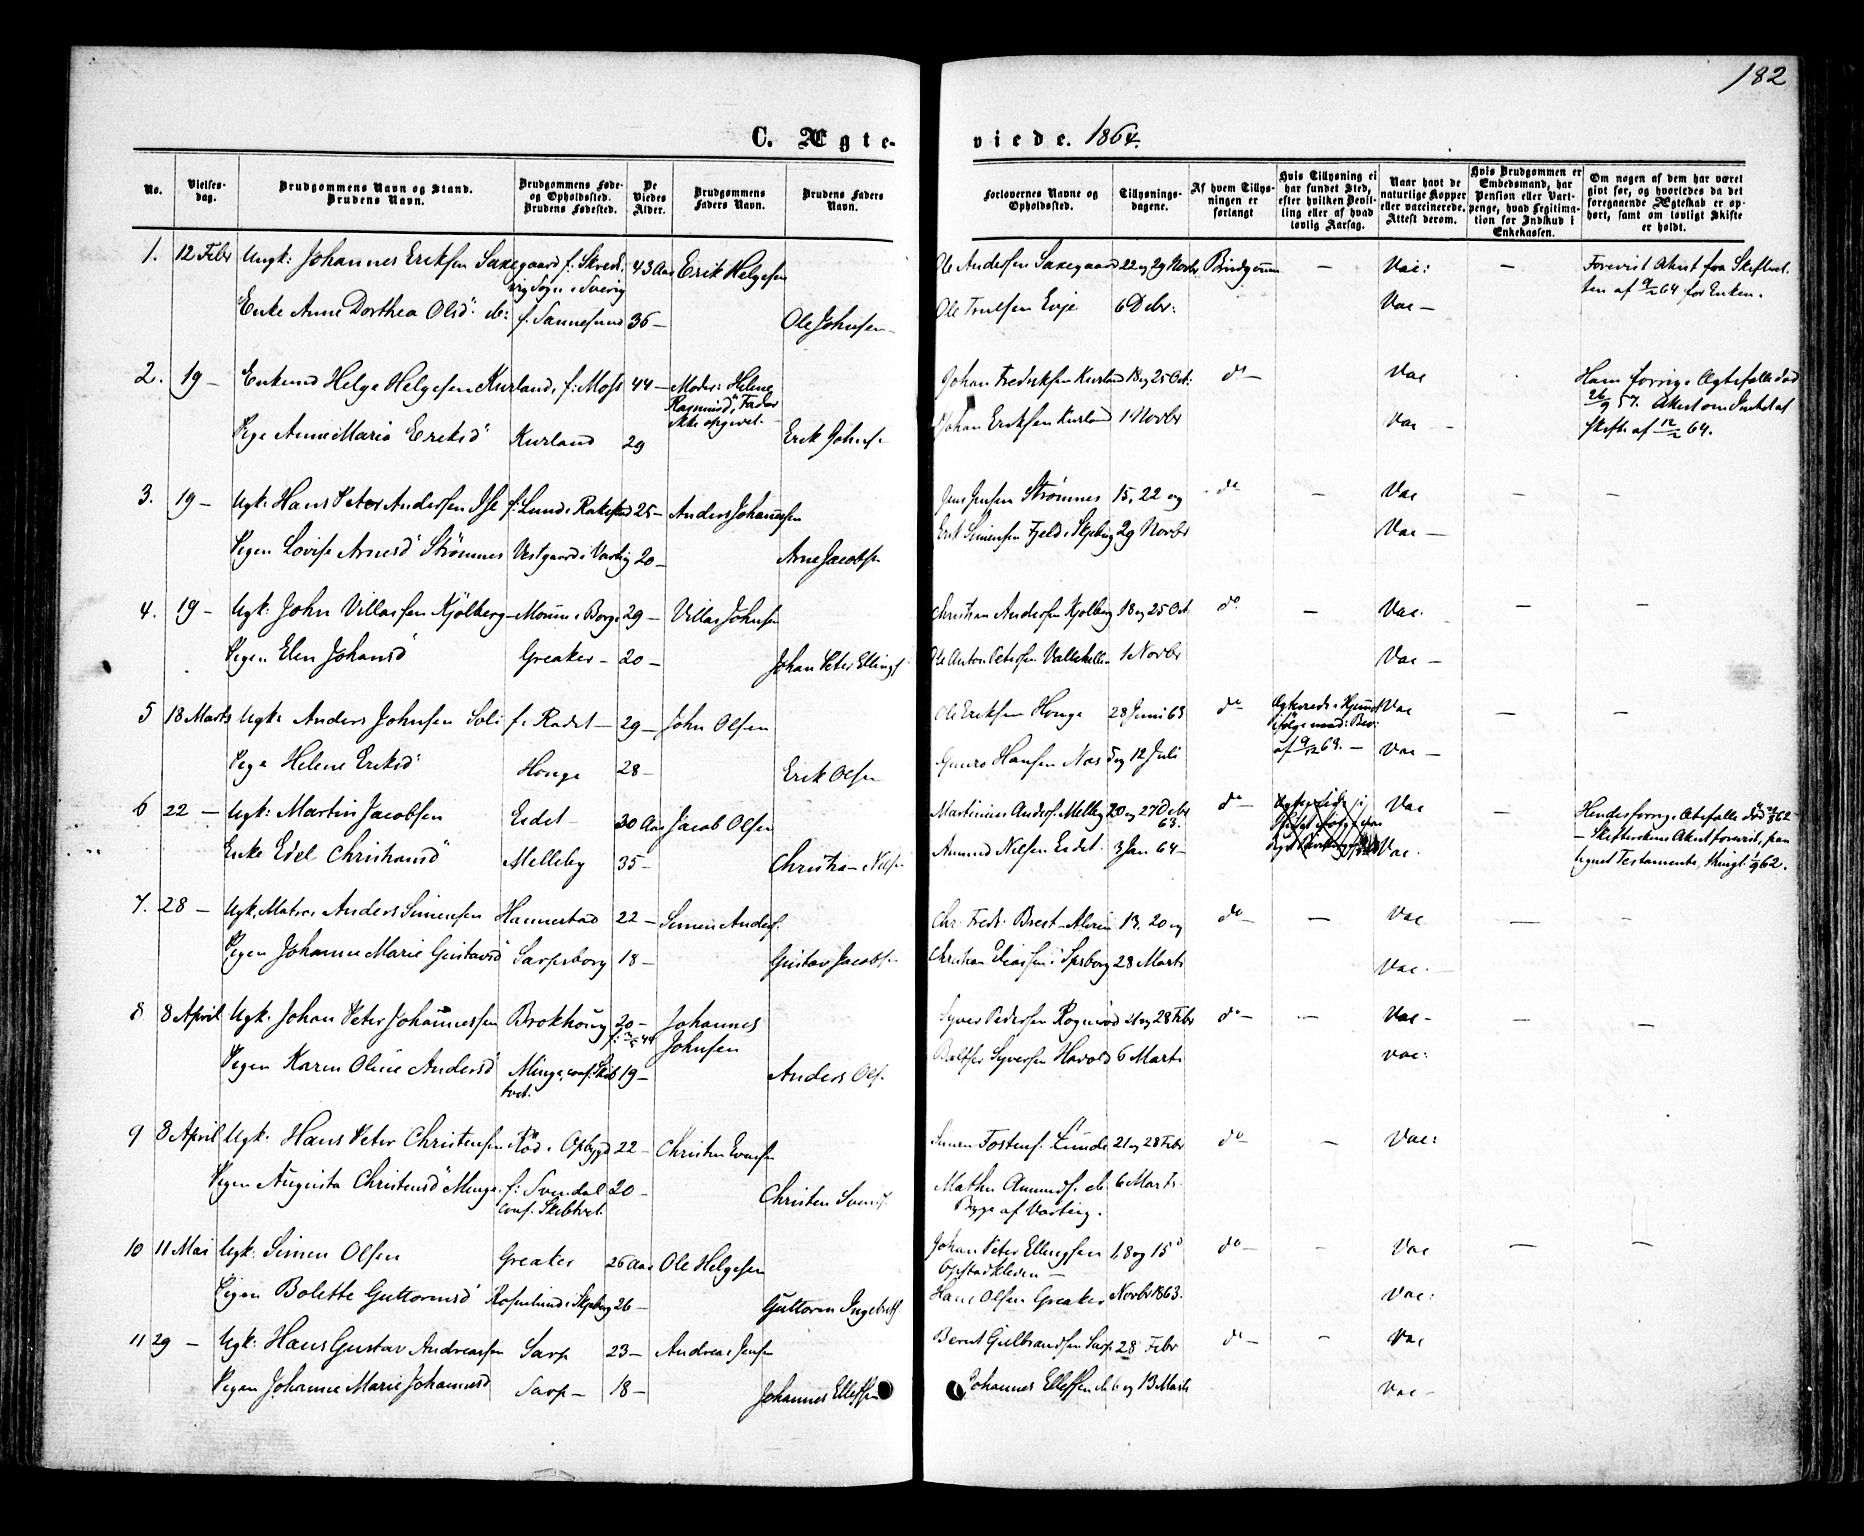 182
C. Ægte-
viede. 1864.
No.
Vielses-
dag.
Brudgommens Navn og Stand.
Brudens Navn.
Brudgommens Føde-
og Opholdssted.
Brudens Fødested.
De
Viedes
Alder.
Brudgommens
Faders Navn.
Brudens Faders
Navn.
Forlovernes Navne og
Opholdssted.
Tillysnings-
dagene.
Af hvem Tillys-
ningen er
forlangt
Hvis Tillysning ei
har fundet Sted,
efter hvilken Bevil-
ling eller af hvad
lovlig Aarsag.
Naar havt de
naturlige Kopper
eller vaccinerede.
Attest derom.
Hvis Brudgommen er
Embedsmand, har
Pension eller Vart-
penge, hvad Legitima-
tion for Indskud i
Enkekassen.
Om nogen af dem har været
givt før, og hvorledes da det
foregaaende Ægteskab er op-
hørt, samt om lovligt Skifte
er holdt.
1. 12 Febr Ungk: Johannes Eriksen Saxegaard f: Skred- 43 Aar Erik Helgesen
vig Sogn i Sverig
Ole Andersen Saxegaard 22 og 29 Novbr Brudgommen — Vac: —
Forevist Akest fra Skifteret-
ten af 9/2 64 for Enken.
Enke Anne Dorthea Olsd: ib: f. Sannesund 36 — Ole Johnsen
Ole Truelsen Evje 6 Debr: Vac —
2. 19 — Enkemd Helge Helgesen Kurland, f: Moss 44 — Moder: Helene
Rasmusd, Fader
ikke opgivet.
Johan Fredriksen Kurland 18 og 25 Oct. do — Vac
Hans forrige Ægtefælle død
26/9 57. Akest om
Skifte af 12/2 64.
Pige Anne Maria Eriksd Kurland 29 Erik Johns.
Johan Eriksen Kurland 1 Novbr Vac —
3. 19 — Ugk: Hans Peter Andersen Ise f: Lund i Rakestad 25 — Anders Johannesen
Jens Jensen Strømnes 15, 22 og do — Vac — —
Pigen Lovise Arnesd Strømnes Vestgaard i Varteig 20 — Arne Jacobsen
Erik Simensen Fjeld i Skjeberg 29 Novbr Vac —
4. 19 — Ugk: John Villassen Kjølberg — Moum i Borge 29 — Villas Johnsen
Christian Andersen Kjølberg 18 og 25 Oct. do — Vac. — —
Pigen Elen Johansd Greaker — 20 — Johan Peter Ellings
Ole Anton Petersen Vallehellen 1 Novbr Vac —
5 18 Marts Ugk: Anders Johnsen Soli f: Radet — 29 — John Olsen
Ole Eriksen Honge 28 Juni 63 do Ægteviede i Hjemmet
ifølge
af 9/12 63. — Vac — —
Pige Helene Eriksd Honge 28 — Erik Olsen
Hansen Næs 5 og 12 Juli Vac —
6 22 — Ugk: Martin Jacobsen Eidet 30 Aar Jacob Olsen
Martinius Anders. Melleby 20 og 27 Debr
63. do — Vac —
Hendes forrige Ægtefælle død 62
— Skifterettens Akest forevist, paa-
tegnet Testamente, thinglt 62.
Enke Edel Christiansd Melleby 35 — Christian Nils
Amund Nilsen Eidet. 3 Jan 64 — Vac.
7. 28 — Ugk, Matros Anders Simensen Hannestad 22 — Simen Anders.
Chr. Fredr. Brest-Alvim 13, 20 og do — — Vac — —
Pigen Johanne Marie Gustavsd Sarpsborg 18 — Gustav Jacobsen
Christian Eliassen i Sarpsborg 28 Marts Vac.
8 8 April Ugk. Johan Peter Johannessen Brokhoug 20 —
Johannes
Johnsen
Syver Pedersen Rognerød 21 og 28 Febr do — — Vac — — —
Pigen Karen Oline Andersd Minge, conf: Skib-
tvet. 19 — Anders Ols.
Syversen Havold 6 Marts Vac:
9 8 April Ugk. Hans Peter Christensen Rød i Opbygd 22 — Christen Evensen
Simen Tostens. Lunde 21 og 28 Febr do — Vac:
Pigen Augusta Christensd Minge f: Svendal
conf. Skibtvet. 20 — Christen Svends
Mathis Amunds. ib. 6 Marts.
Begge af Varteig.
10 11 Mai Ugk: Simen Olsen Greaker 26 Aar Ole Helgesen
Johan Peter Ellingsen
Opstadkleven —
1, 8 og 15 do — — Vac — —
Pigen Bolette Guttormsd Rosenlund i Skjeberg 26 — Guttorm Ingebrets
Hans Olsen Greaker Novbr 1863. Vac:
11 29 — Ugk: Hans Gustav Andreassen Sarp 23 — Andreas Jensen
Bernt Gulbrandsen Sarp 28 Febr do — — Vac
Pigen Johanne Marie Johannesd Sarp — 18 — Johannes Ellefsen
Johannes Ellefsen ib 6 og 13 Marts Vac —